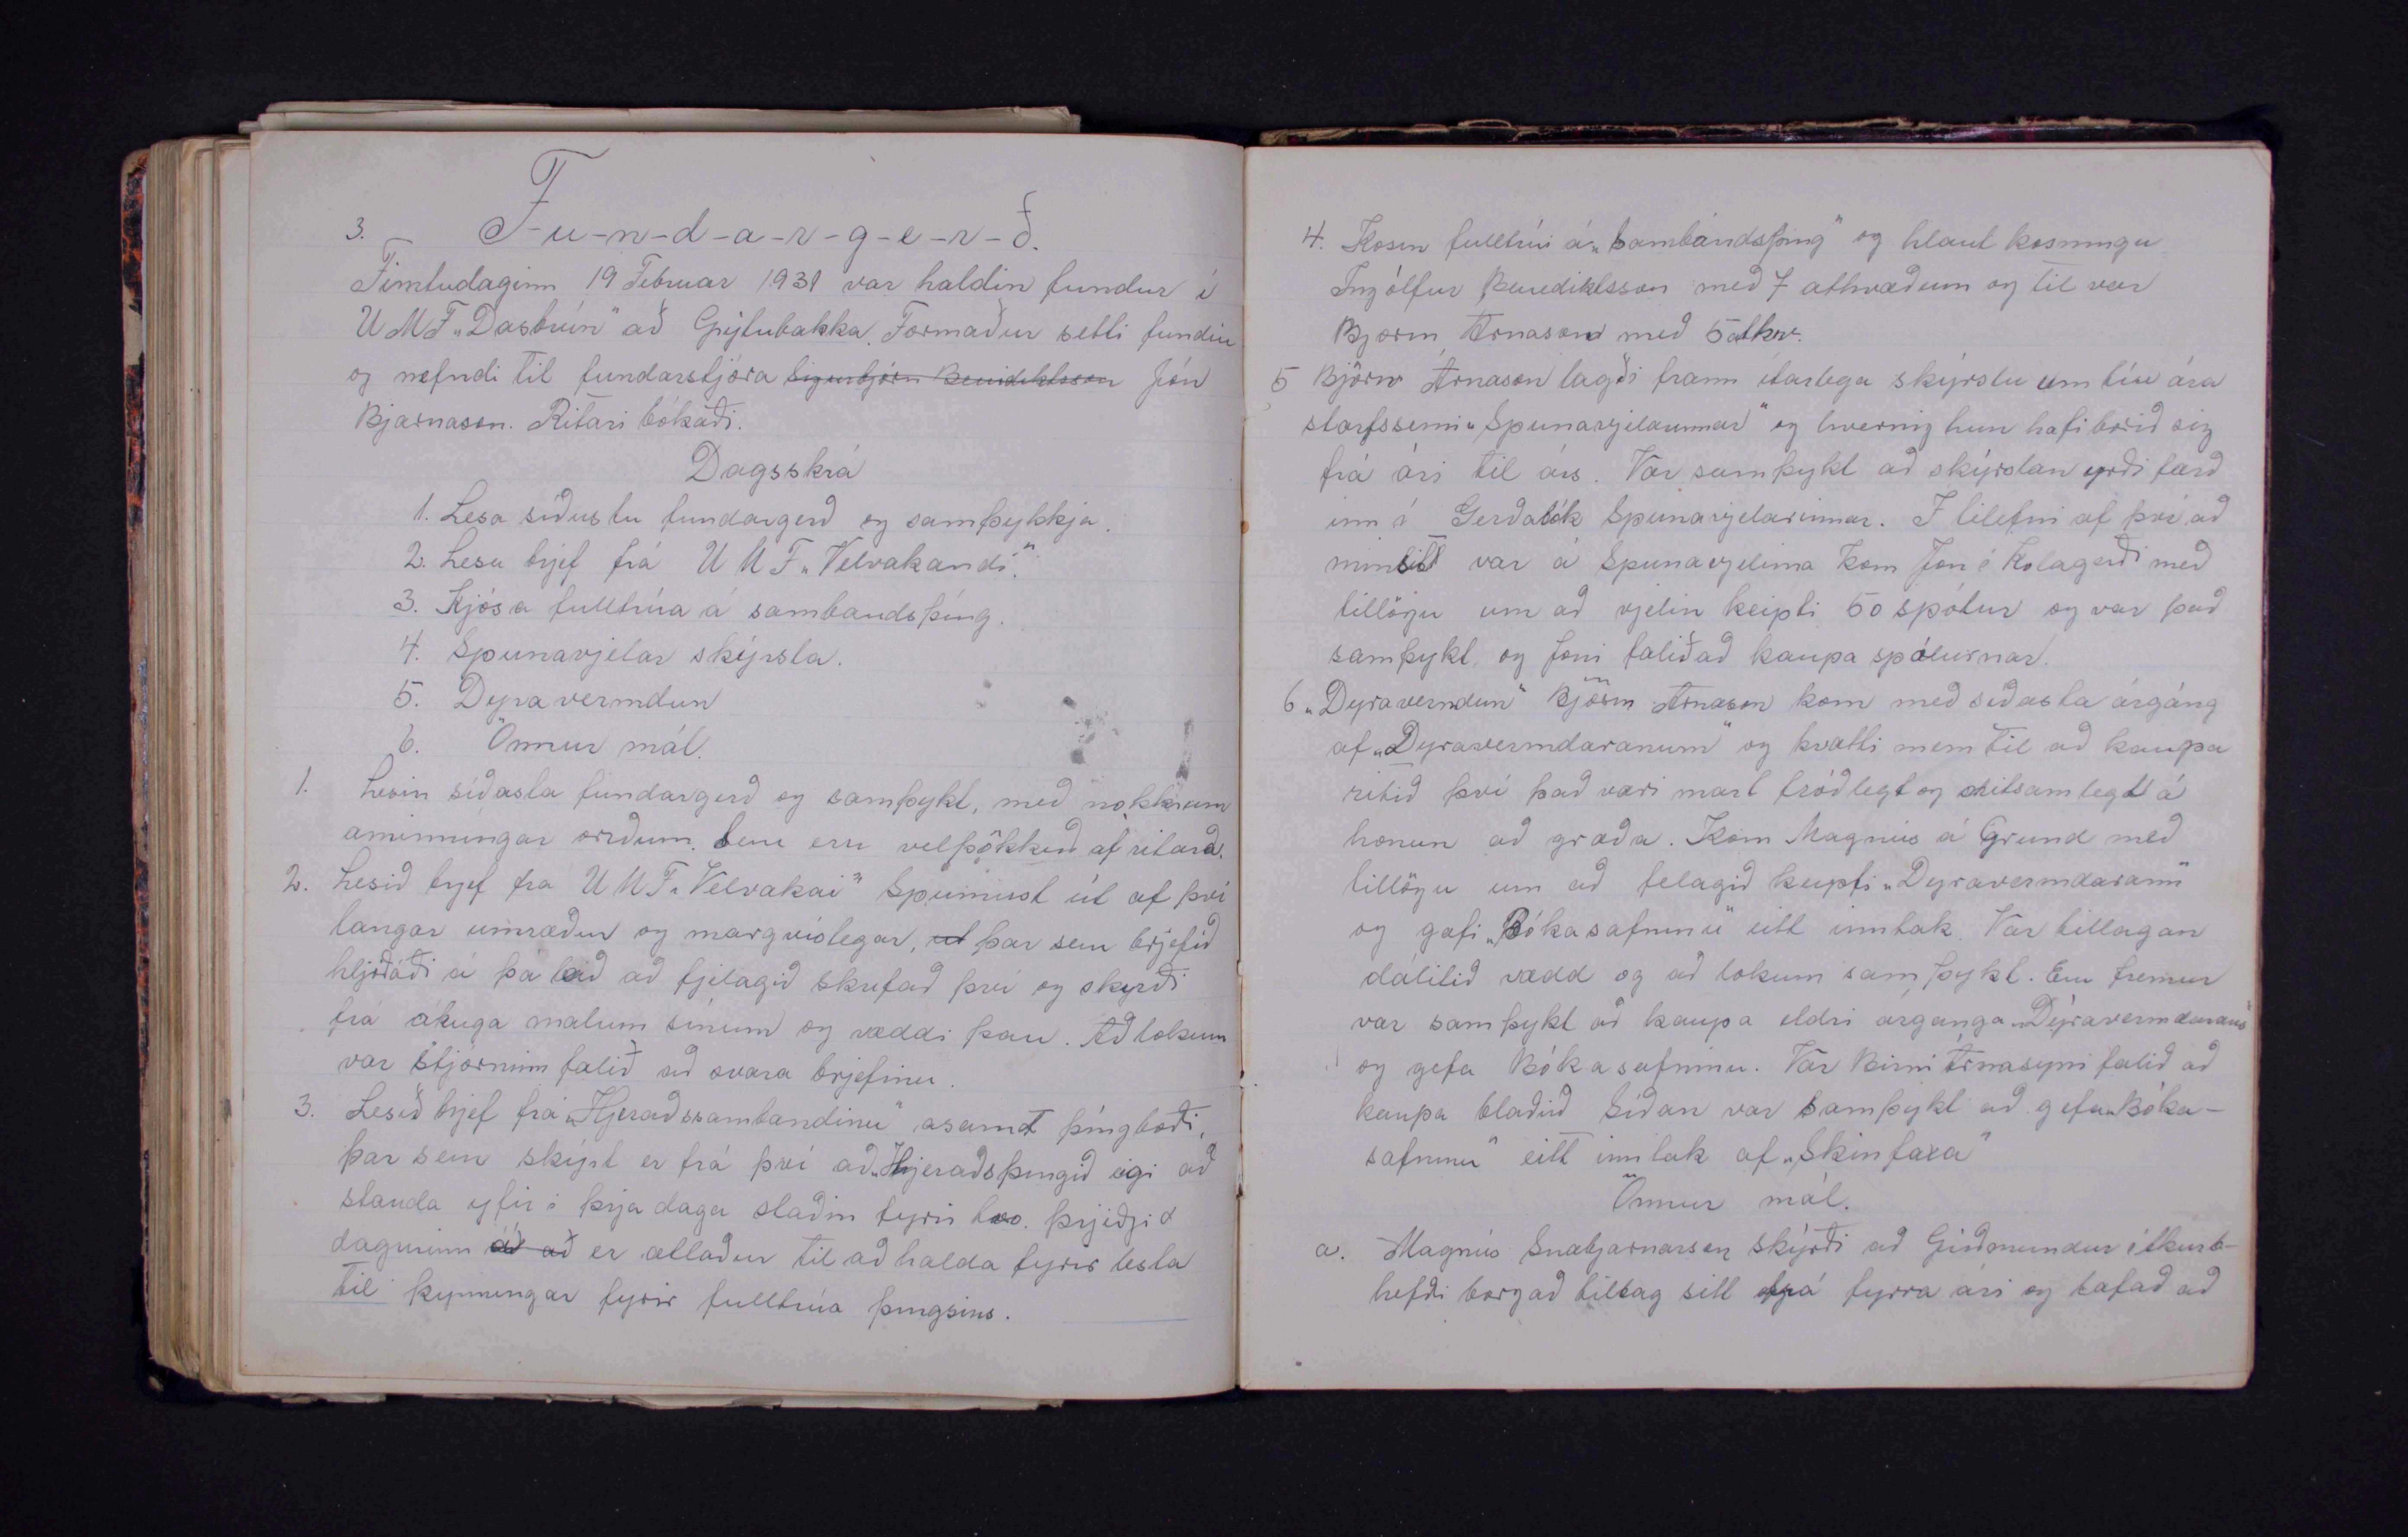 3. F-u-n-d-a-r-g-e-r-ð.
Fimtudaginn 19 Februar 1931 var haldin fundur í
U M F „Dasbrún" að Grýtubakka. Formaður setti fundin
og nefndi til fundarstjóra Sigurbjörn Benidiktsson Jón
Bjarnason. Ritari bókaði.
Dagsskrá
1. Lesa síðustu fundargerð og samþykkja.
2. Lesa brjef frá U M F „Velvakandi".
3. Kjósa fulltrúa á sambandsþing.
4. Spunavjelar skýrsla.
5. Dyravermdun
6. Önnur mál.
1. Lesin síðasta fundargerð og samþykt, með nokkrum
aminningar orrðum. Sem eru velþökkuð af ritara.
2. Lesið brjef fra U M F „Velvakai" Spunnust út af því
langar umræður og margvíslegar, ut þar sem brjefið
hljóðaði á þá leið að fjelagið skrifað því og skyrði
frá ahuga malum sínum og ræddi þau. Að lokum
var stjórninni falið að svara brjefinu.
3. Lesið brjef frá „Hjeraðssambandinu" asamt þingboði,
þar sem skýrt er frá því að „Hjeraðsþingið eigi að
standa yfir í þrja daga staðin fyrir tvo. þrjiðji
dagurinn að að er ætlaður til að halda fyrirlestra
til kynningar fyrir fulltrúa þingsins.
4. Kosin fulltrúi á „Sambandsþing" og hlaut kosningu
Ingólfur Benediktsson með 7 athvæðum og til var
Bjorn Árnason með 5 atkv.
5 Björn Árnason lagði framm ítarlega skýrslu um tíu ára
starfssemi „Spunavjelarinnar" og hvernig hun hafi borið sig
frá ári til árs. Var samþykt að skýrslan yrði færð
inn í Gerðabók Spunavjelarinnar. I tilefni af því að
minst var á Spunavjelina kom Jón í Kolagerði með
tillögu um að vjelin keipti 50 spólur og var það
samþykt, og Joni falið að kaupa spólurnar.
6 „Dyravermdun" Björn Arnason kom með síðasta árgáng
af „Dyravermdaranum" og hvatti menn til að kaupa
ritið því það væri mart fróðlegt og nitsamlegt á
honum að græða. Kom Magnús á Grund með
tillögu um að felagið keypti „Dyravermdarann"
og gæfi „Bókasafninu" eitt inntak. Var tillagan
dálitið rædd og að lokum samþykt. Enn fremur
var samþykt að kaupa eldri árganga „Dýravermdarans"
og gefa Bókasafninu. Var Birni Árnasyni falið að
kaupa blaðið Síðan var samþykt að gefa „Bóka-
safninu" eitt inntak af „Skinfaxa"
Önnur mál.
a. Magnús Snæbjarnarson skýrði að Guðmundur í
hefði borgað tillag sitt frá fyrra ári og að